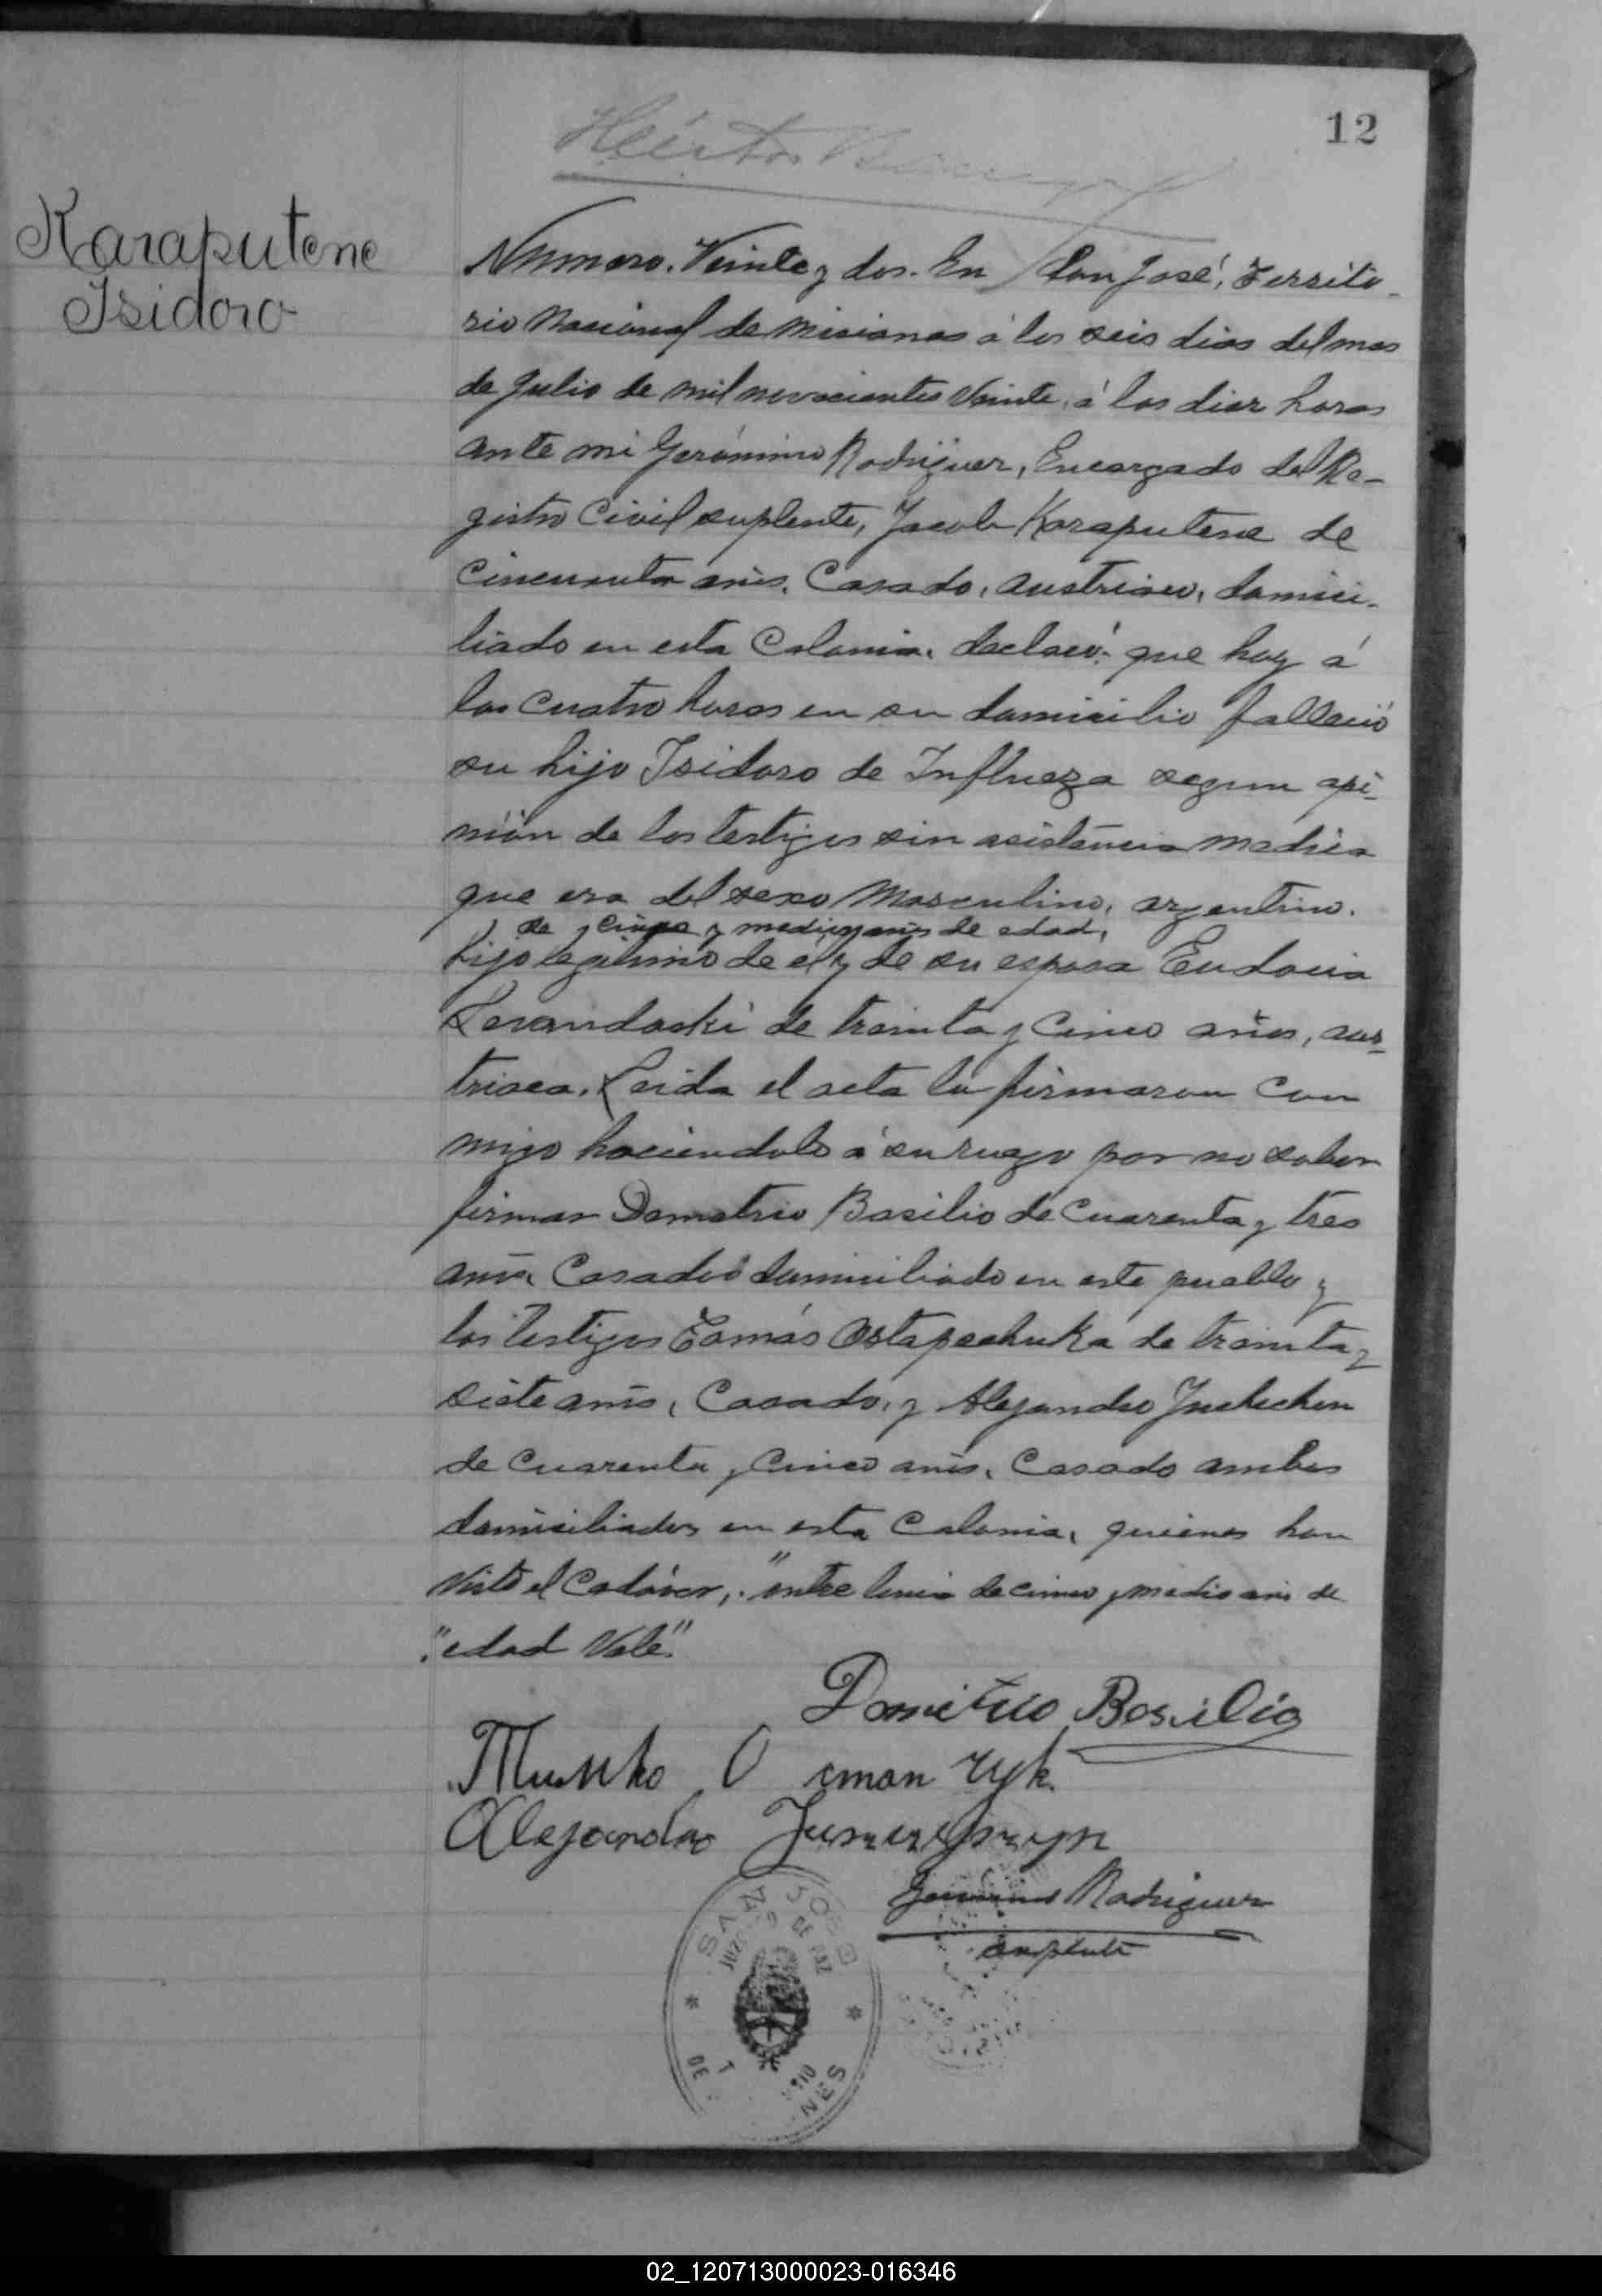 12
Héctor
Karaputene
Isidoro
Numero. Veinte y dos. En San José, Territo-
rio Nacional de Misiones á los seis dias del mes
de Julio de mil novecientos Veinte, á las diez horas
ante mi Gerónimo Rodriguez, Encargado del Re-
gistro Civil suplente, Jacob Karaputene de
Cincuenta años, Casado, austriaco, domici-
liado en esta Colonia, declaró: que hoy á
las cuatro horas en su domicilio falleció
su hijo Isidoro de Influeza segun opi-
nión de los testigos sin asistencia medica
que era del sexo Masculino, argentino.
de cinco y medio años de edad,
hijo legitimo de el y de su esposa Eudocia
Levandoski de treinta y Cinco años, aus-
triaca. Leida el acta la firmaron con
migo haciendolo á su ruego por no saber
firmar Demetrio Basilio de Cuarenta y tres
años, Casado domiciliado en este pueblo y
los testigos Tomás Ostapechuka de treinta y
siete años, Casado, y Alejandro Juchechen
de Cuarenta y Cinco años, Casado ambos
domiciliados en esta Colonia, quienes han
Visto el Cadáver,. "entre linia de cinco y medio años de
"edad Vale".
Domitrio Bosilio
Alejandro
Geronimo Rodriguez
suplente
SAN JOSE
JUZGADO DE PAZ
DE
NES
02_120713000023-016346